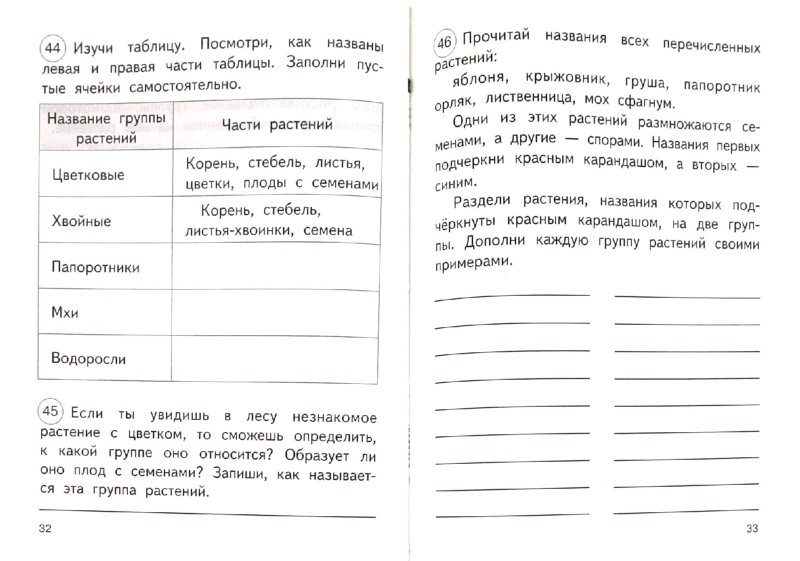 44 Изучи таблицу. Посмотри, как названы
левая и правая части таблицы. Заполни пус-
тые ячейки самостоятельно.
Название группы растений
Части растений
Цветковые
Корень, стебель, листья,
цветки, плоды с семенами
Хвойные
Корень, стебель,
листья-хвоинки, семена
Папоротники
Мхи
Водоросли
45 Если ты увидишь в лесу незнакомое
растение с цветком, то сможешь определить,
к какой группе оно относится? Образует ли
оно плод с семенами? Запиши, как называет-
ся эта группа растений.
32
46 Прочитай названия всех перечисленных
растений:
яблоня, крыжовник, груша, папоротник
орляк, лиственница, мох сфагнум.
Одни из этих растений размножаются се-
менами, а другие — спорами. Названия первых
подчеркни красным карандашом, а вторых —
синим.
Раздели растения, названия которых под-
чёркнуты красным карандашом, на две груп-
пы. Дополни каждую группу растений своими
примерами.
33